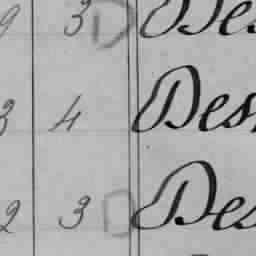 9 3 Des
3 4 Des
2 3 Des